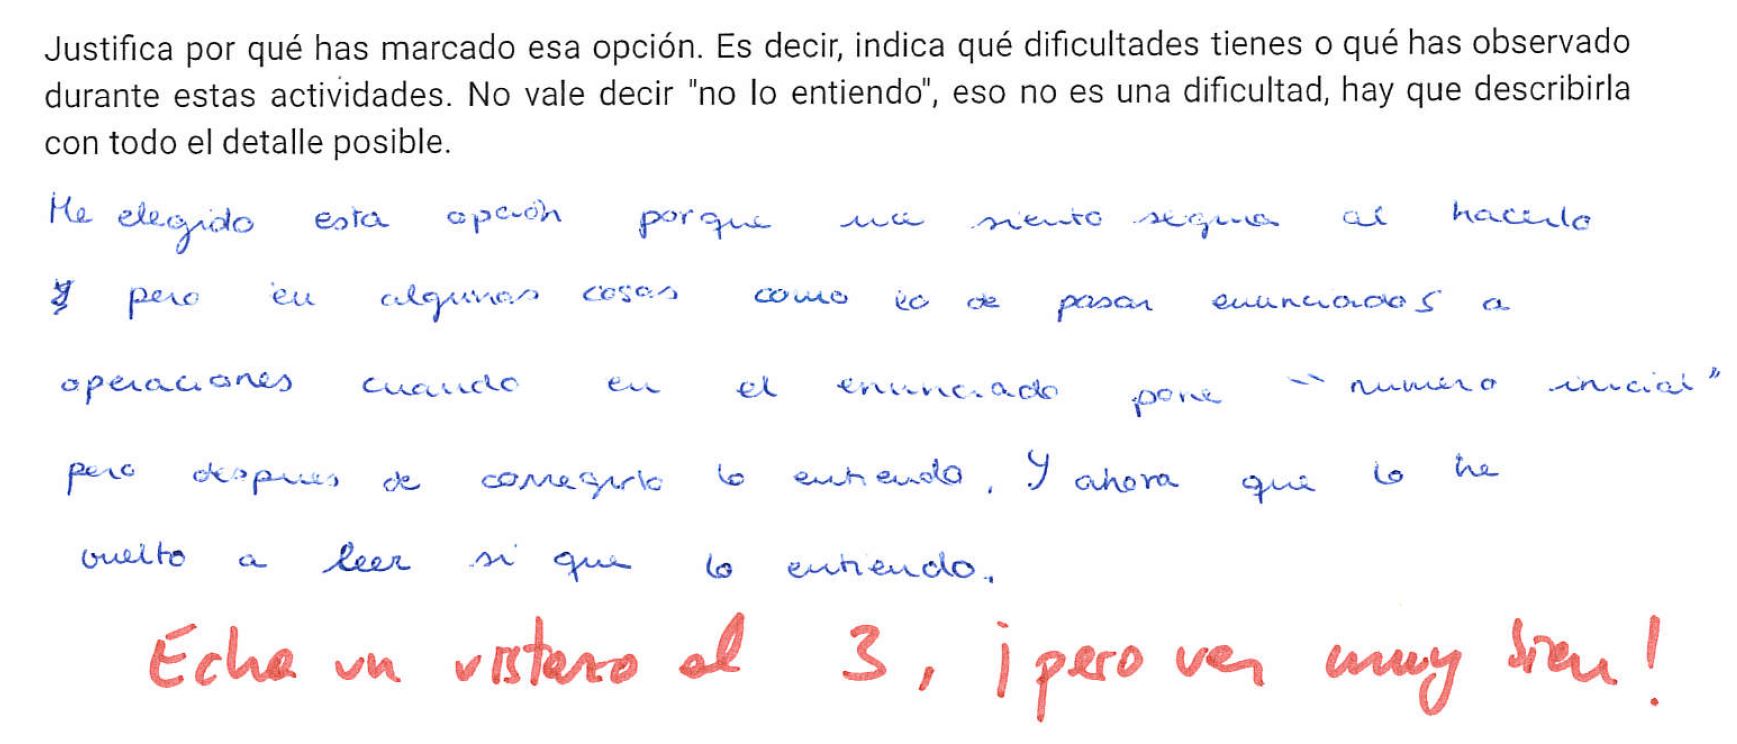 Justifica por qué has marcado esa opción. Es decir, indica qué dificultades tienes o qué has observado
durante estas actividades. No vale decir "no lo entiendo", eso no es una dificultad, hay que describirla
con todo el detalle posible.
He elegido esta opción porque me siento segura al hacerlo
y pero en algunas cosas como lo de pasar enunciados a
operaciones cuando en el enunciado pone "numero inicial"
pero despues de corregirlo lo entiendo. Y ahora que lo he
vuelto a leer si que lo entiendo.
Echa un vistazo al 3, ¡pero ven muy bien!